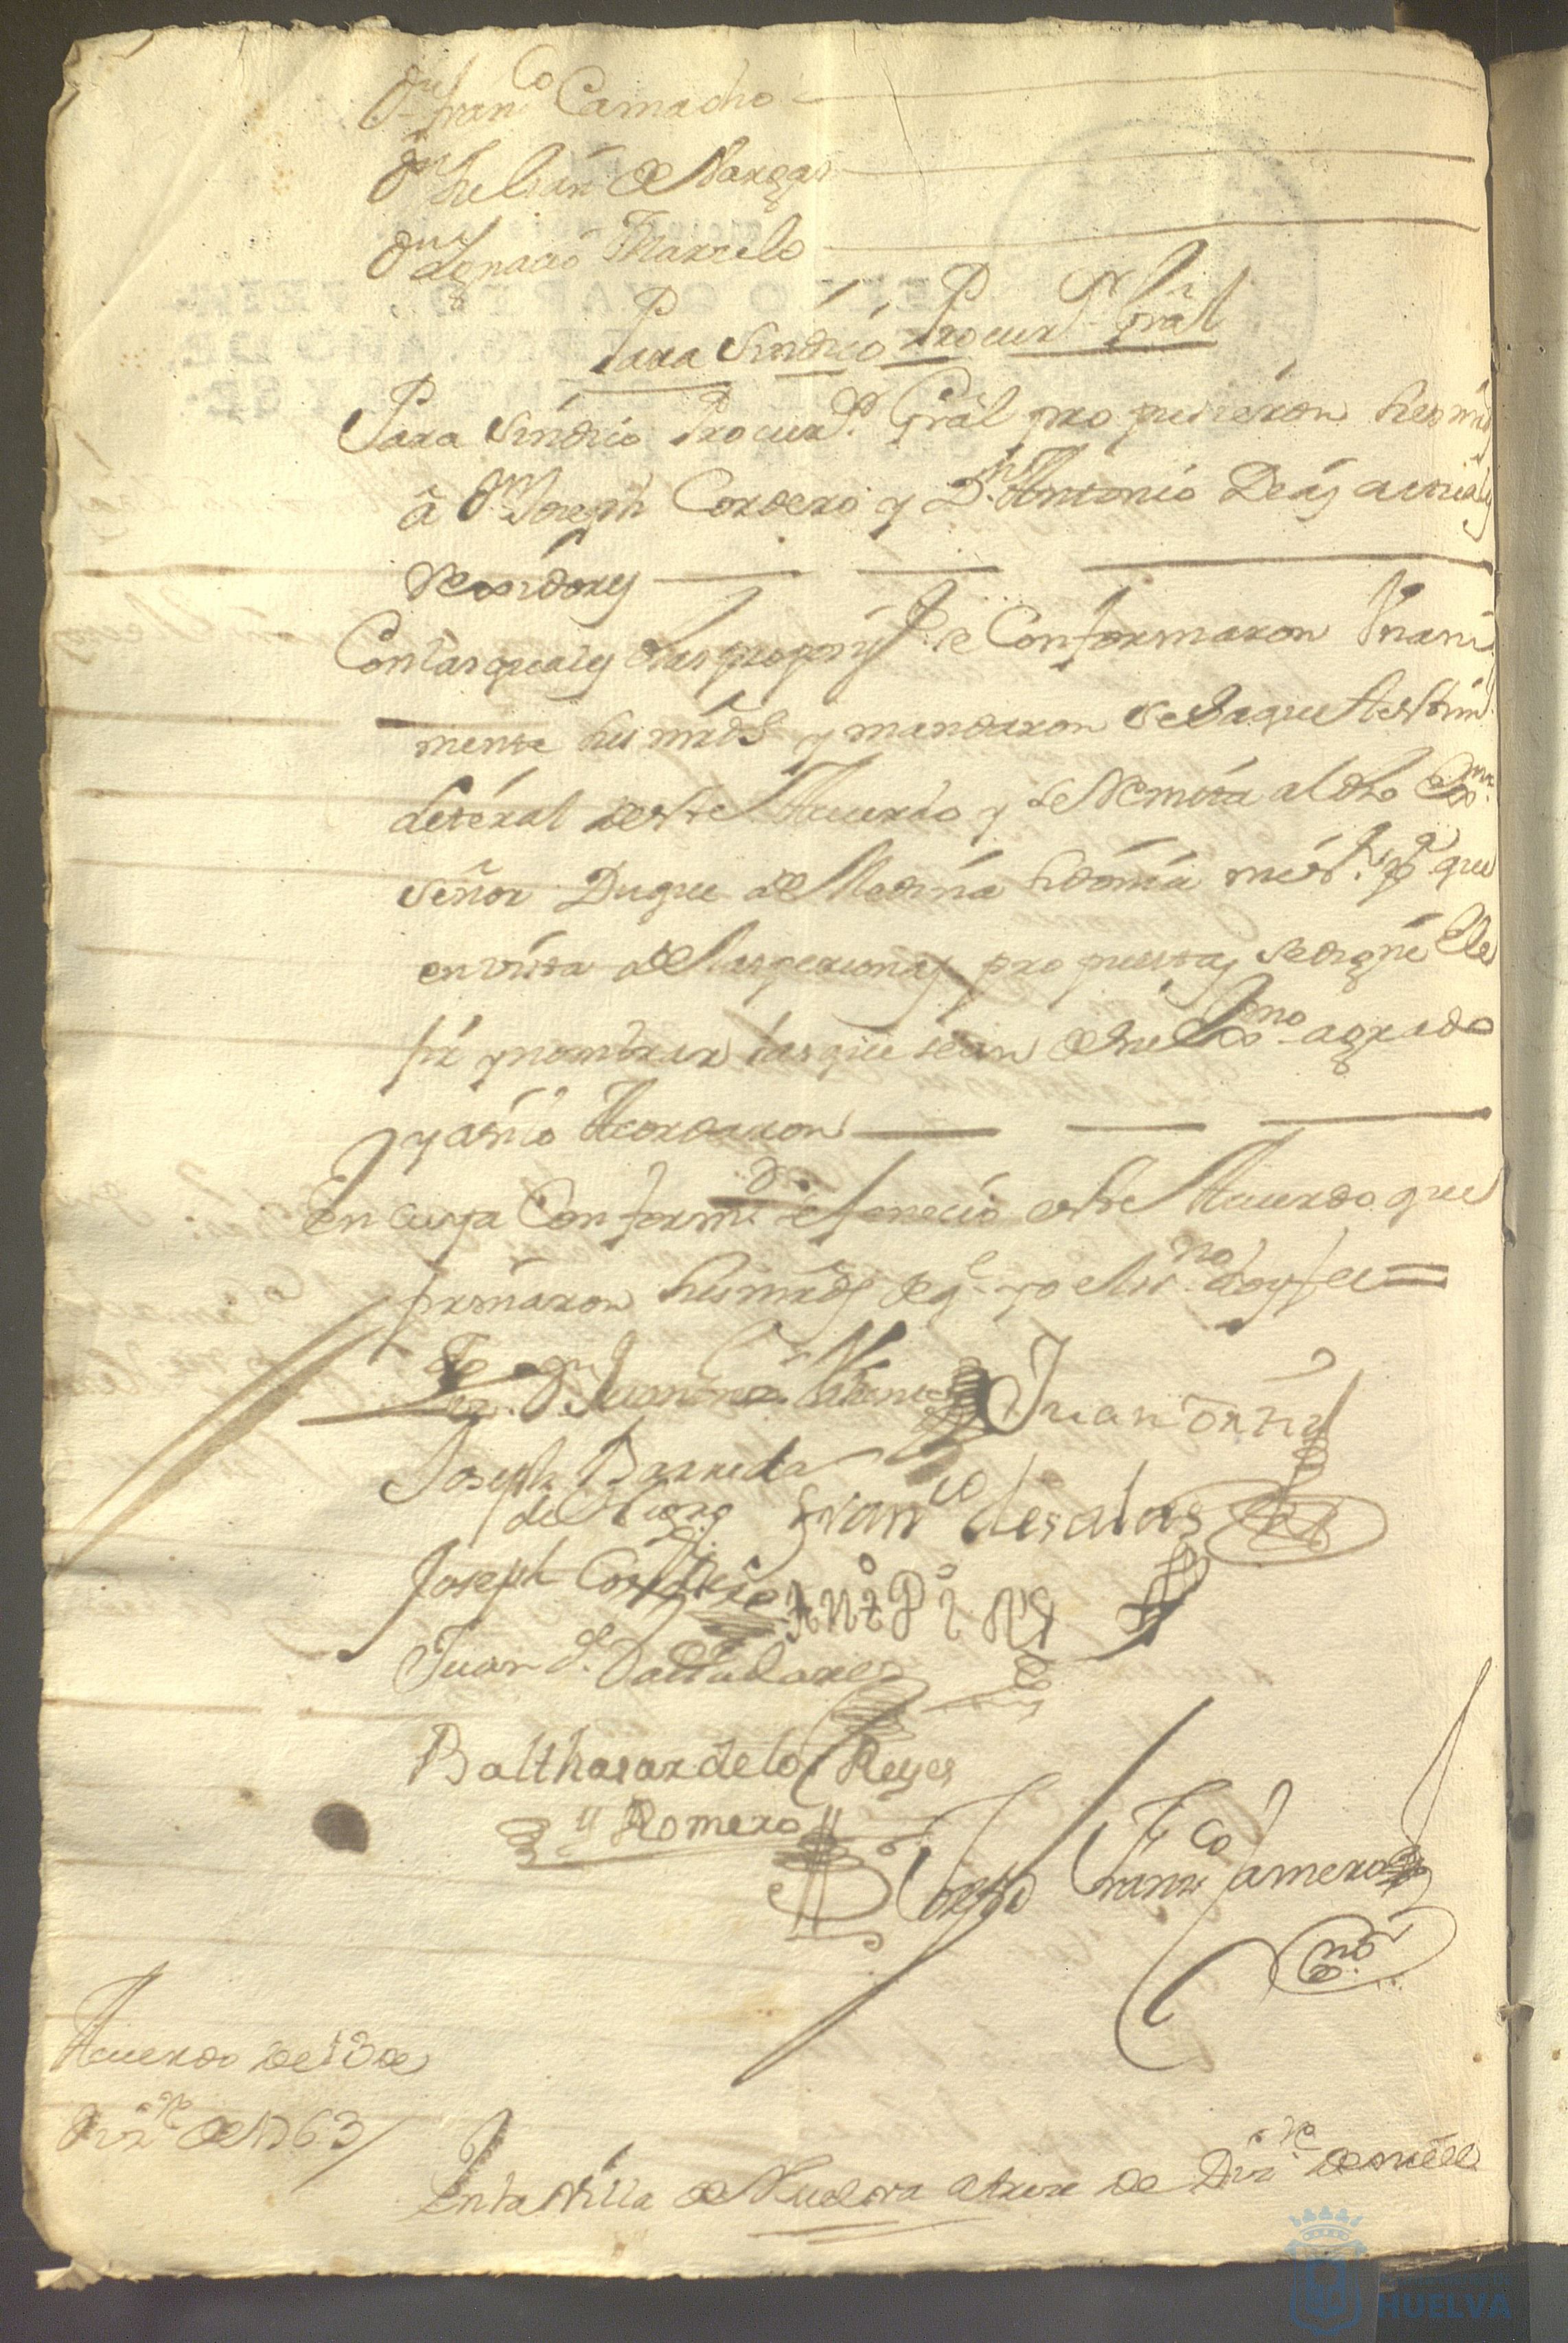 Dn. Franco Camacho
Dn. Julian de Vargas
Dn. Ygnacio Marzelo
Para Sindico Procurr. Grâl
Para Sindico Procurr. Grâl propusieron sus mrds
â Dn. Joseph Cordero y Dn. Antonio Deas actuales
Rexidores
Con las quales dhas propons. se Conformaron Vnani
mente sus mrds. y mandaron se Saque testimo.
Literal deeste Acuerdo y se Remita al dho Exmo.
Señor Duque de Medina Sidonia mi sr. pa. que
en vista de las personas propuestas se digne Ele
jir y nombrar las que sean de su Exmo. agrado
y asi lo Acordaron
En cuya Conformd. se feneció este Acuerdo que
firmaron sus mrds de qe. yo el ssno. doy fee =
Lizdo. Dn. Juan Juan Ortiz
Joseph Barreda
de Franco de salas
Joseph Cordero Anto Pi
Juan S. Valladares
Balthasar de los Reyes
y Romero
Franco Camero
sno.
Acuerdo de 13 de
Dizre. de 1763
En la Villa de Huelva a treze de Dizre. de mill
HUELVA